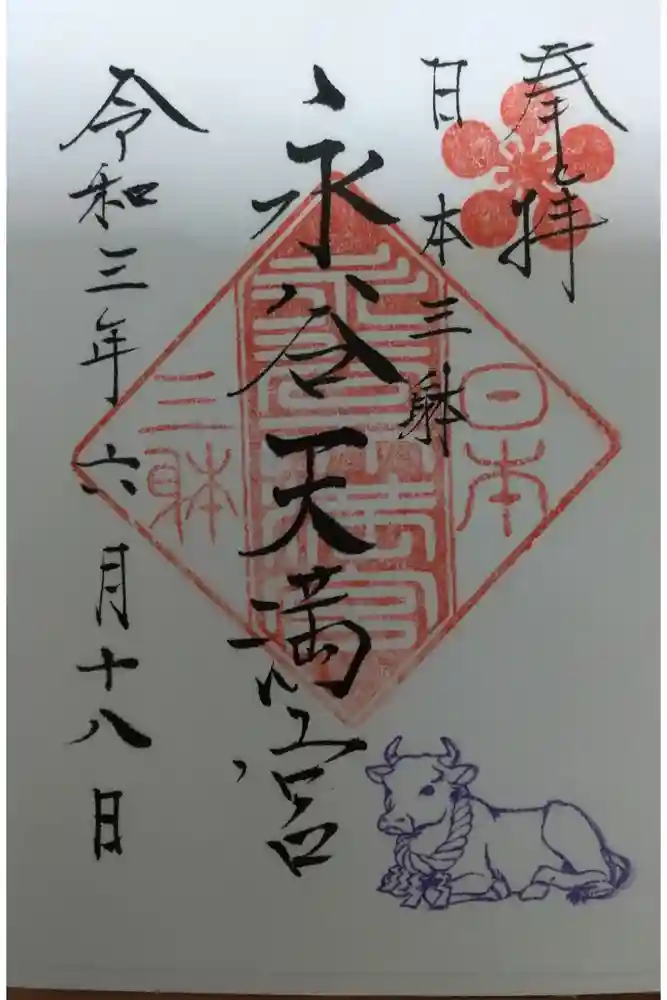 奉拝
日本三躰
永谷天満宮
令和三年六月十八日
日本
三躰